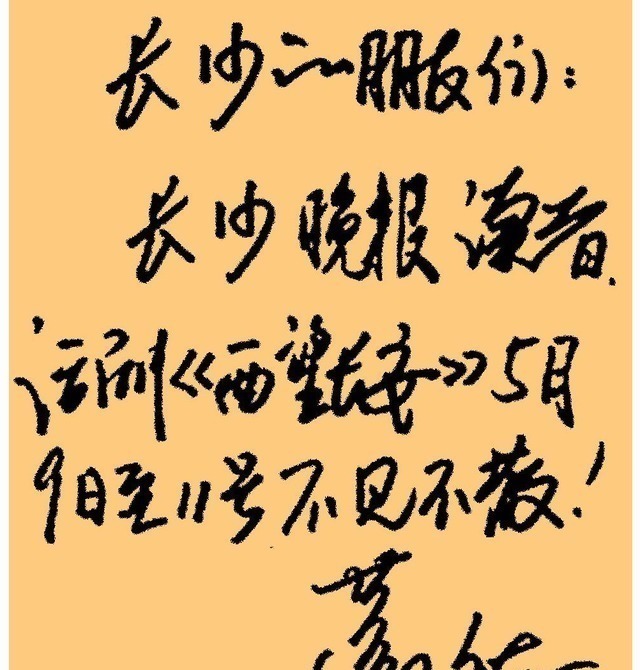 长沙的朋友们：
长沙晚报读者、
话剧《西望长安》5月
9日至11号不见不散！